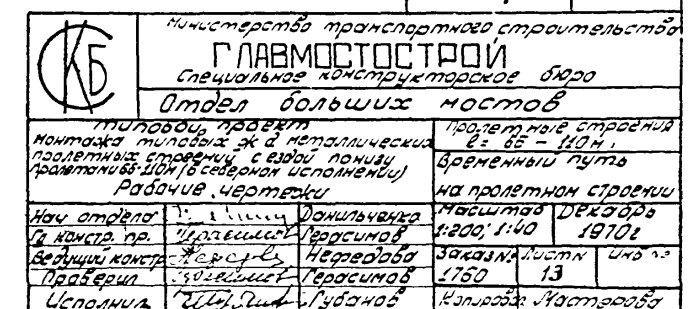 СКБ
Министерство транспортного строительства
ГЛАВМОСТОСТРОЙ
Специальное конструкторское бюро
Отдел больших мостов
Типовой проект
монтажа типовых ж д металлических
пролетных строений с ездой понизу
пролетами 66-110м (в северном исполнении)
Рабочие чертежи
Пролетные строения
ℓ= 66 – 110 м.
Временный путь
на пролетном строении
Нач отдела Данильченко
Масштаб Декабрь
Гл констр. пр. Герасимов
1:200; 1:40 1970г
Ведущий констр Нефедова
Заказ № Лист № Инв №
Проверил Герасимов
1760 13
Исполнил Губанов
Копировал Мастерова